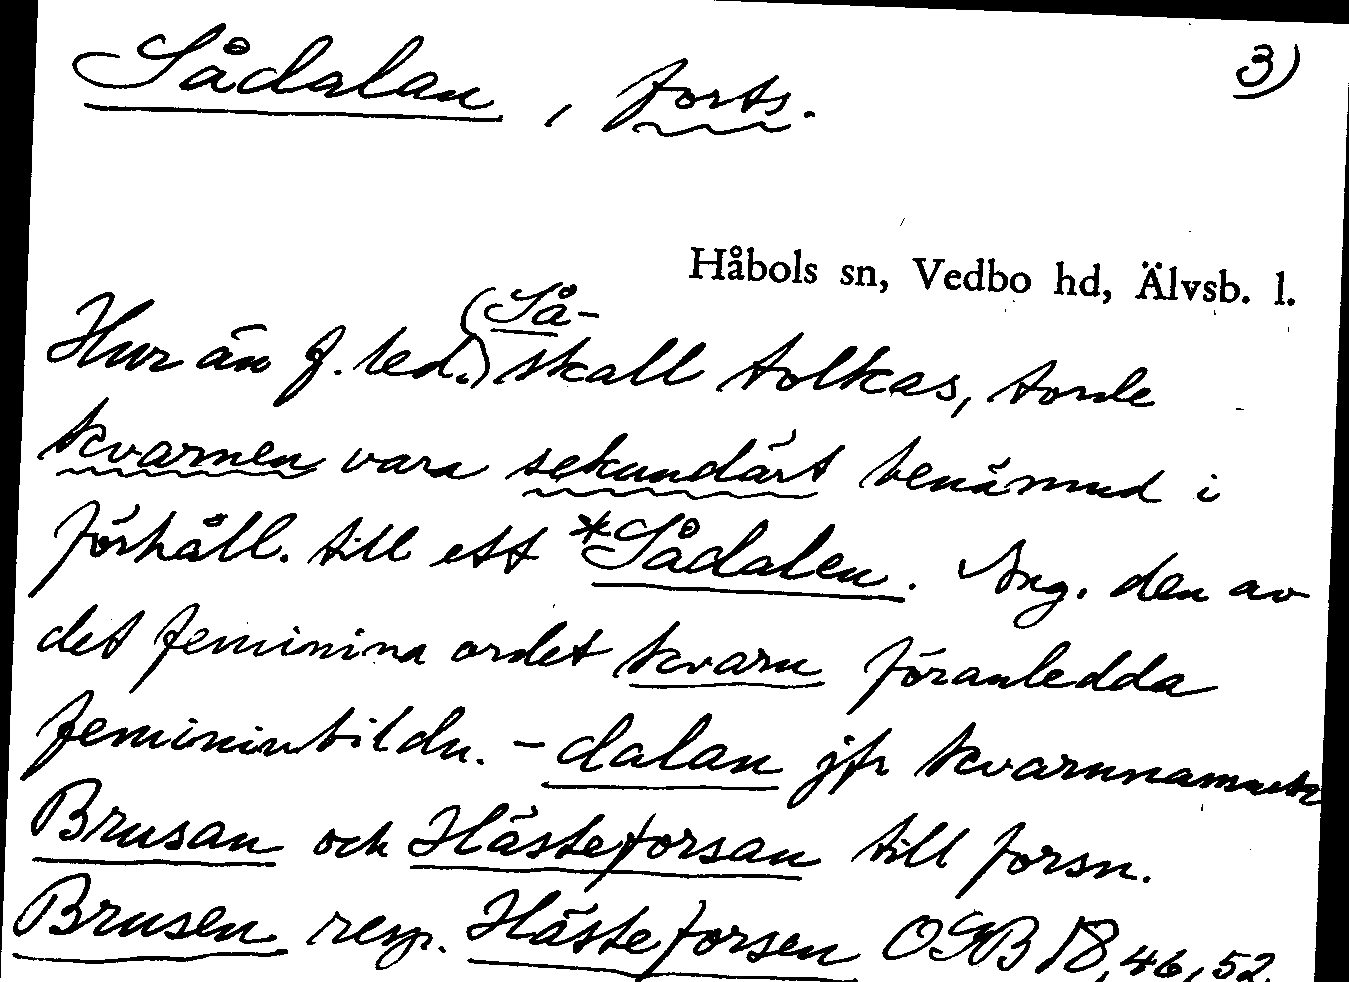 Sådalan, forts. 3)
Håbols sn, Vedbo hd, Älvsb. l.
Hur än f. led. (Så-) skall tolkas, torde
kvarnen vara sekundärt benämnd i
förhåll. till ett *Sådalen. Ang. den av
det feminina ordet kvarn föranledda
femininbildn. -dalan jfr kvarnnamnen
Brusan och Hästeforsan till forsn.
Brusen resp. Hästeforsen OGB 18, 46, 52.